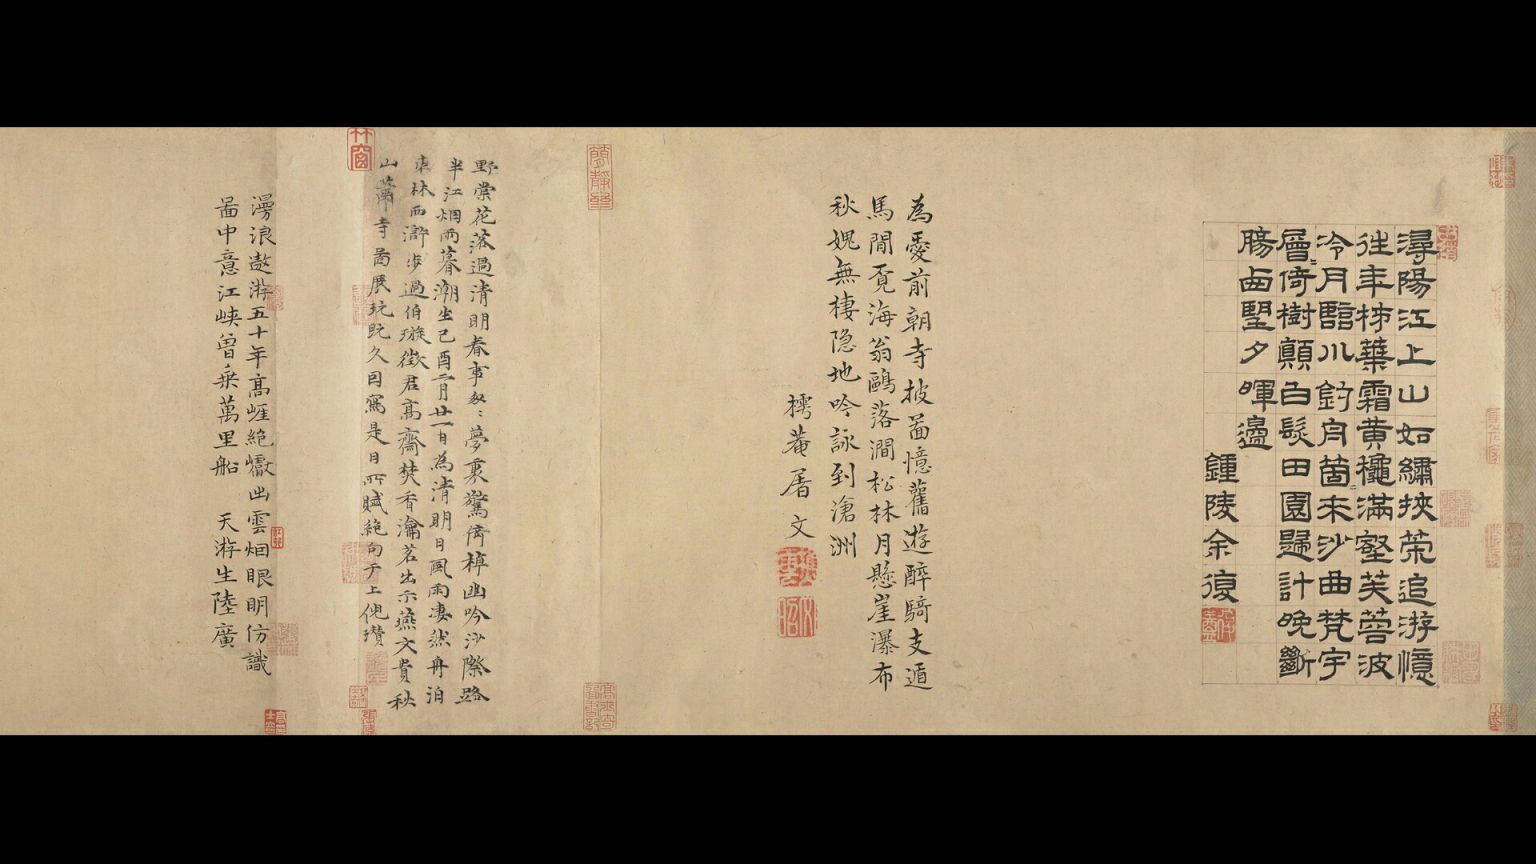 潯陽江上山如繡挾策追游憶
往年柿葉霜黃龝滿壑芙蓉波
冷月臨川釣舟箇〻來沙曲梵宇
層〻倚樹顛白髮田園歸計晚斷
腸西望夕暉邊
鍾陵余復
為愛前朝寺披啚憶舊遊醉騎支遁
馬閒覓海翁鷗落澗松林月懸崖瀑布
秋媿無棲隱地吟詠到滄洲
樗菴屠文
簡靜齋
野棠花落過清明春事匆〻夢裏驚倚棹幽吟沙際路
半江烟雨暮潮生己酉二月廿一日為清明日風雨凄然舟泊
東林西滸步過伯璇徵君高齋焚香瀹茗出示燕文貴秋
山蕭寺啚展玩既久因寫是日所賦絕句于上倪瓚
竹窗
漫浪遨游五十年高崖絶巘出雲烟眼明仿識
啚中意江峽曾乘萬里船 天游生陸廣